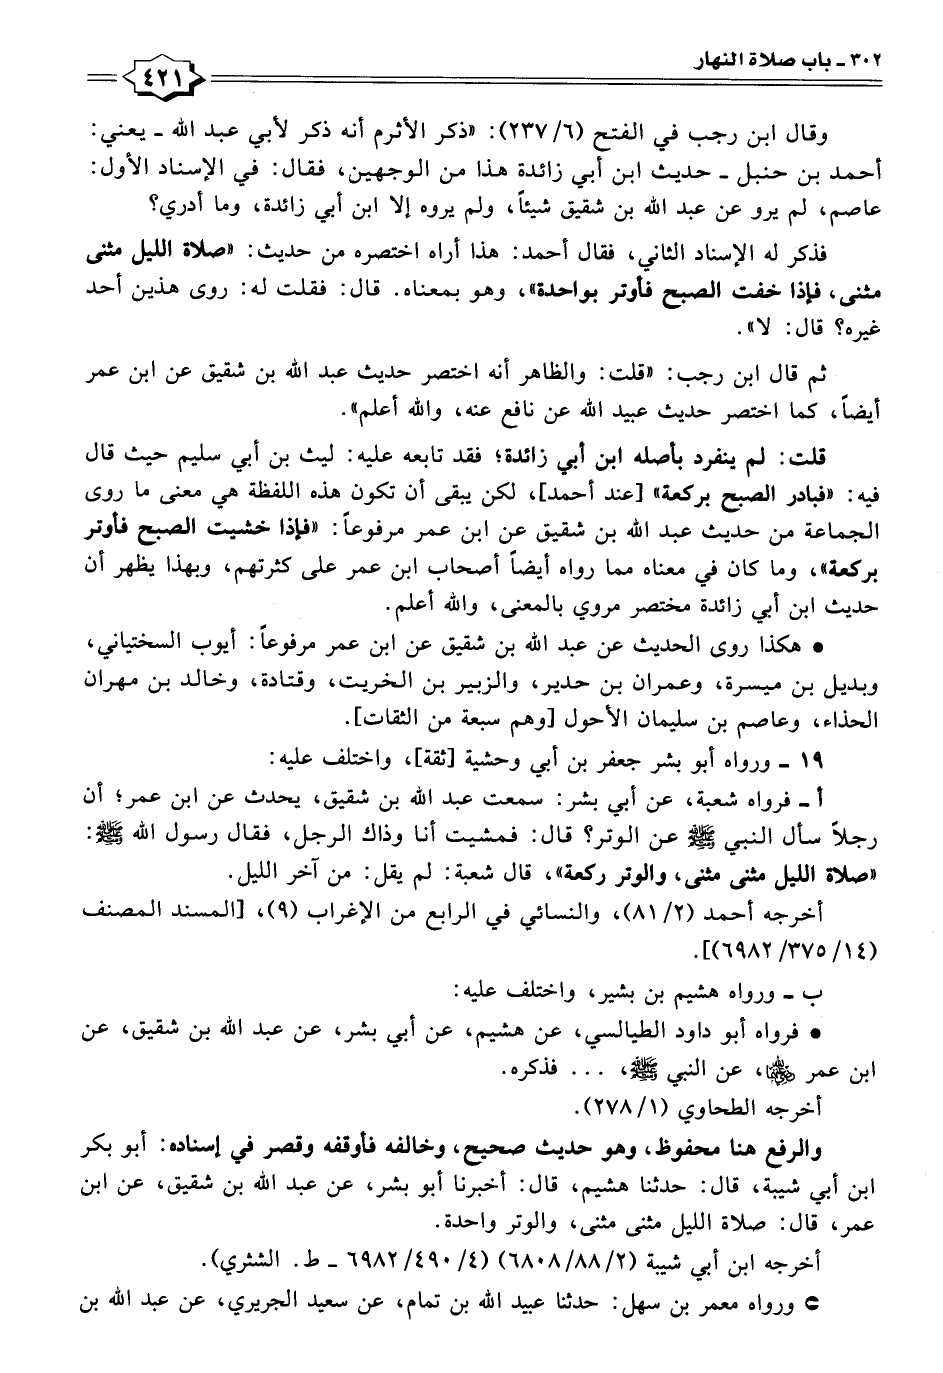 ٣٠٢ - باب صلاة النهار
٤٢١
وقال ابن رجب في الفتح (٢٣٧/٦): «ذكر الأثرم أنه ذكر لأبي عبد الله - يعني:
أحمد بن حنبل - حديث ابن أبي زائدة هذا من الوجهين، فقال: في الإسناد الأول:
عاصم، لم يرو عن عبد الله بن شقيق شيئاً، ولم يروه إلا ابن أبي زائدة، وما أدري؟
فذكر له الإسناد الثاني، فقال أحمد: هذا أراه اختصره من حديث: «صلاة الليل مثنى
مثنى، فإذا خفت الصبح فأوتر بواحدة»، وهو بمعناه. قال: فقلت له: روى هذين أحد
غيره؟ قال: لا».
ثم قال ابن رجب: «قلت: والظاهر أنه اختصر حديث عبد الله بن شقيق عن ابن عمر
أيضاً، كما اختصر حديث عبيد الله عن نافع عنه، والله أعلم».
قلت: لم ينفرد بأصله ابن أبي زائدة؛ فقد تابعه عليه: ليث بن أبي سليم حيث قال
فيه: «فبادر الصبح بركعة» [عند أحمد]، لكن يبقى أن تكون هذه اللفظة هي معنى ما روى
الجماعة من حديث عبد الله بن شقيق عن ابن عمر مرفوعاً: «فإذا خشيت الصبح فأوتر
بركعة»، وما كان في معناه مما رواه أيضاً أصحاب ابن عمر على كثرتهم، وبهذا يظهر أن
حديث ابن أبي زائدة مختصر مروي بالمعنى، والله أعلم.
• هكذا روى الحديث عن عبد الله بن شقيق عن ابن عمر مرفوعاً: أيوب السختياني،
وبديل بن ميسرة، وعمران بن حدير، والزبير بن الخريت، وقتادة، وخالد بن مهران
الحذاء، وعاصم بن سليمان الأحول [وهم سبعة من الثقات].
١٩ - ورواه أبو بشر جعفر بن أبي وحشية [ثقة]، واختلف عليه:
أ - فرواه شعبة، عن أبي بشر: سمعت عبد الله بن شقيق، يحدث عن ابن عمر؛ أن
رجلاً سأل النبي ﷺ عن الوتر؟ قال: فمشيت أنا وذاك الرجل، فقال رسول الله ﷺ:
«صلاة الليل مثنى مثنى، والوتر ركعة»، قال شعبة: لم يقل: من آخر الليل.
أخرجه أحمد (٨١/٢)، والنسائي في الرابع من الإغراب (٩)، [المسند المصنف
(٦٩٨٢/٣٧٥/١٤)].
ب - ورواه هشيم بن بشير، واختلف عليه:
• فرواه أبو داود الطيالسي، عن هشيم، عن أبي بشر، عن عبد الله بن شقيق، عن
ابن عمر ﵁، عن النبي ﷺ، ... فذكره.
أخرجه الطحاوي (٢٧٨/١).
والرفع هنا محفوظ، وهو حديث صحيح، وخالفه فأوقفه وقصر في إسناده: أبو بكر
ابن أبي شيبة، قال: حدثنا هشيم، قال: أخبرنا أبو بشر، عن عبد الله بن شقيق، عن ابن
عمر، قال: صلاة الليل مثنى مثنى، والوتر واحدة.
أخرجه ابن أبي شيبة (٦٨٠٨/٨٨/٢) (٦٩٨٢/٤٩٠/٤ - ط. الشثري).
⊂ ورواه معمر بن سهل: حدثنا عبيد الله بن تمام، عن سعيد الجريري، عن عبد الله بن